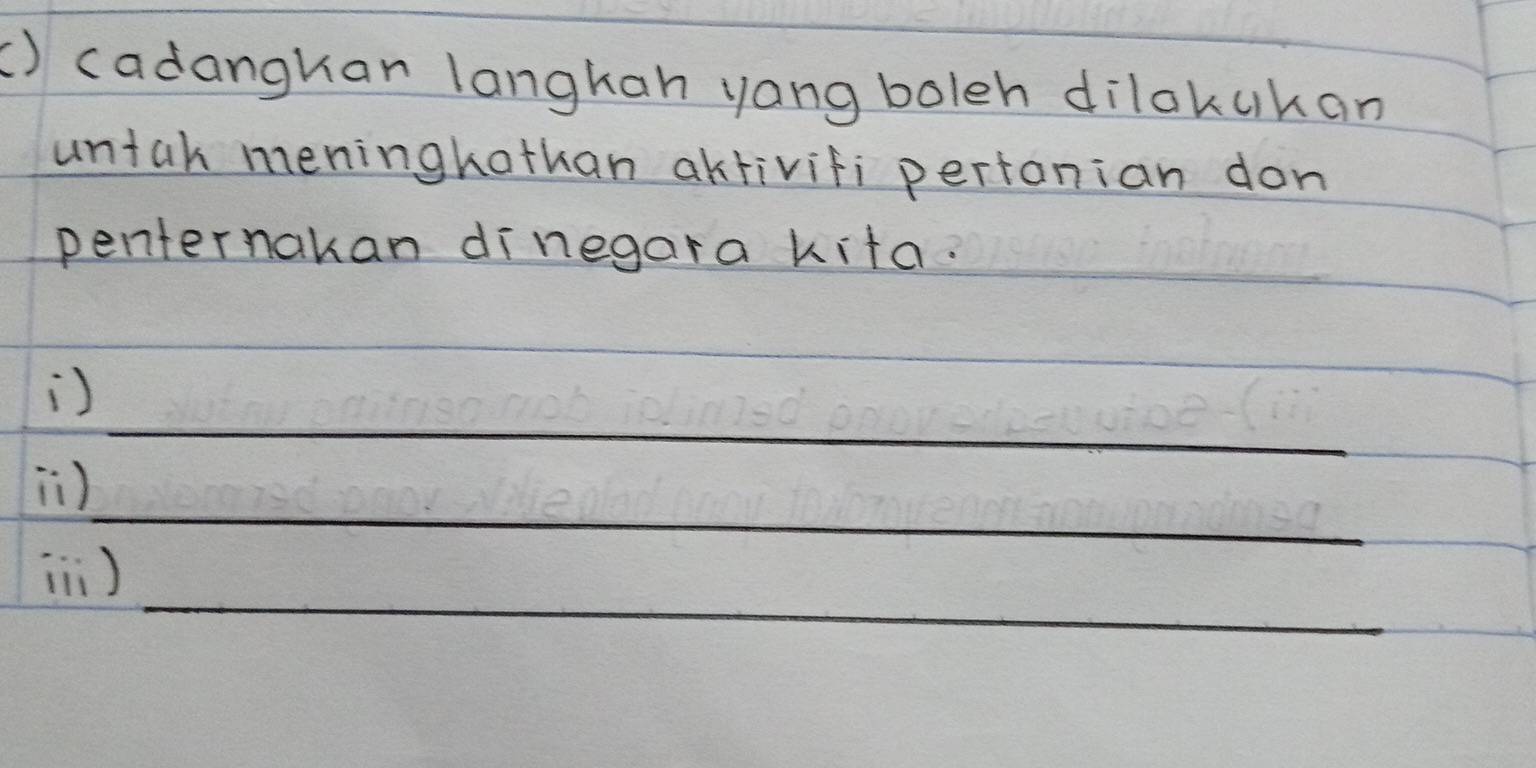 c) cadangkan langkah yang boleh dilakukan
untuk meningkatkan aktiviti pertanian dan
penternakan di negara kita.
i)
ii)
iii)